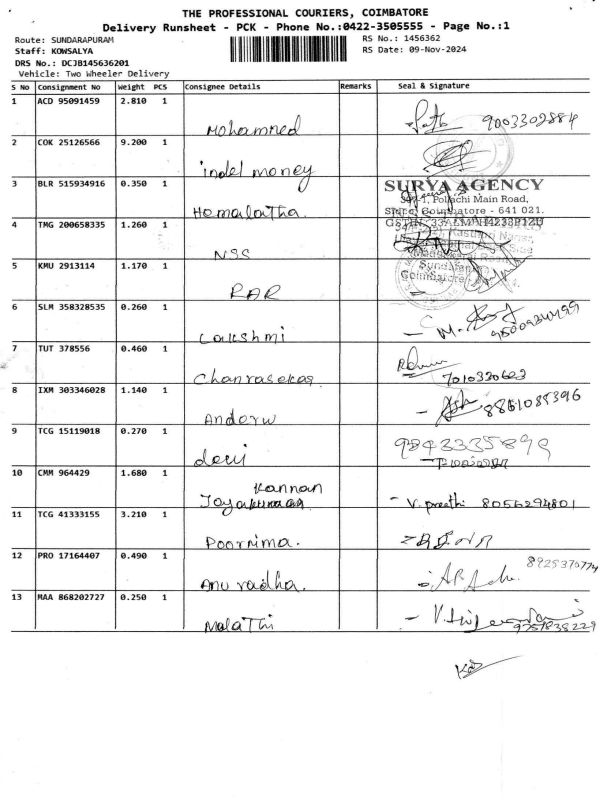 THE PROFESSIONAL COURIERS, COIMBATORE
Delivery Runsheet - PCK - Phone No.:0422-3505555 - Page No.:1
Route: SUNDARAPURAM RS No.: 1456362
Staff: KOWSALYA RS Date: 09-Nov-2024
DRS No.: DCJB145636201
Vehicle: Two Wheeler Delivery
S No Consignment No Weight PCS Consignee Details Remarks Seal & Signature
1 ACD 95091459 2.810 1 Mohammed 9003302884
2 COK 25126566 9.200 1 indel money
3 BLR 515934916 0.350 1 Hemalatha.
SURYA AGENCY
Pollachi Main Road,
Coimbatore - 641 021.
4 TMG 200658335 1.260 1 NSS
5 KMU 2913114 1.170 1 RAR
6 SLM 358328535 0.260 1 Lakshmi
7 TUT 378556 0.460 1 Chanrasekar
8 IXM 303346028 1.140 1 Anderw 8861085396
9 TCG 15119018 0.270 1 devi
10 CMM 964429 1.680 1 Kannan
- V. preethi 8056294801
11 TCG 41333155 3.210 1 Poornima.
12 PRO 17164407 0.490 1 Anuradha. 8925370774
13 MAA 868202727 0.250 1 Malathi